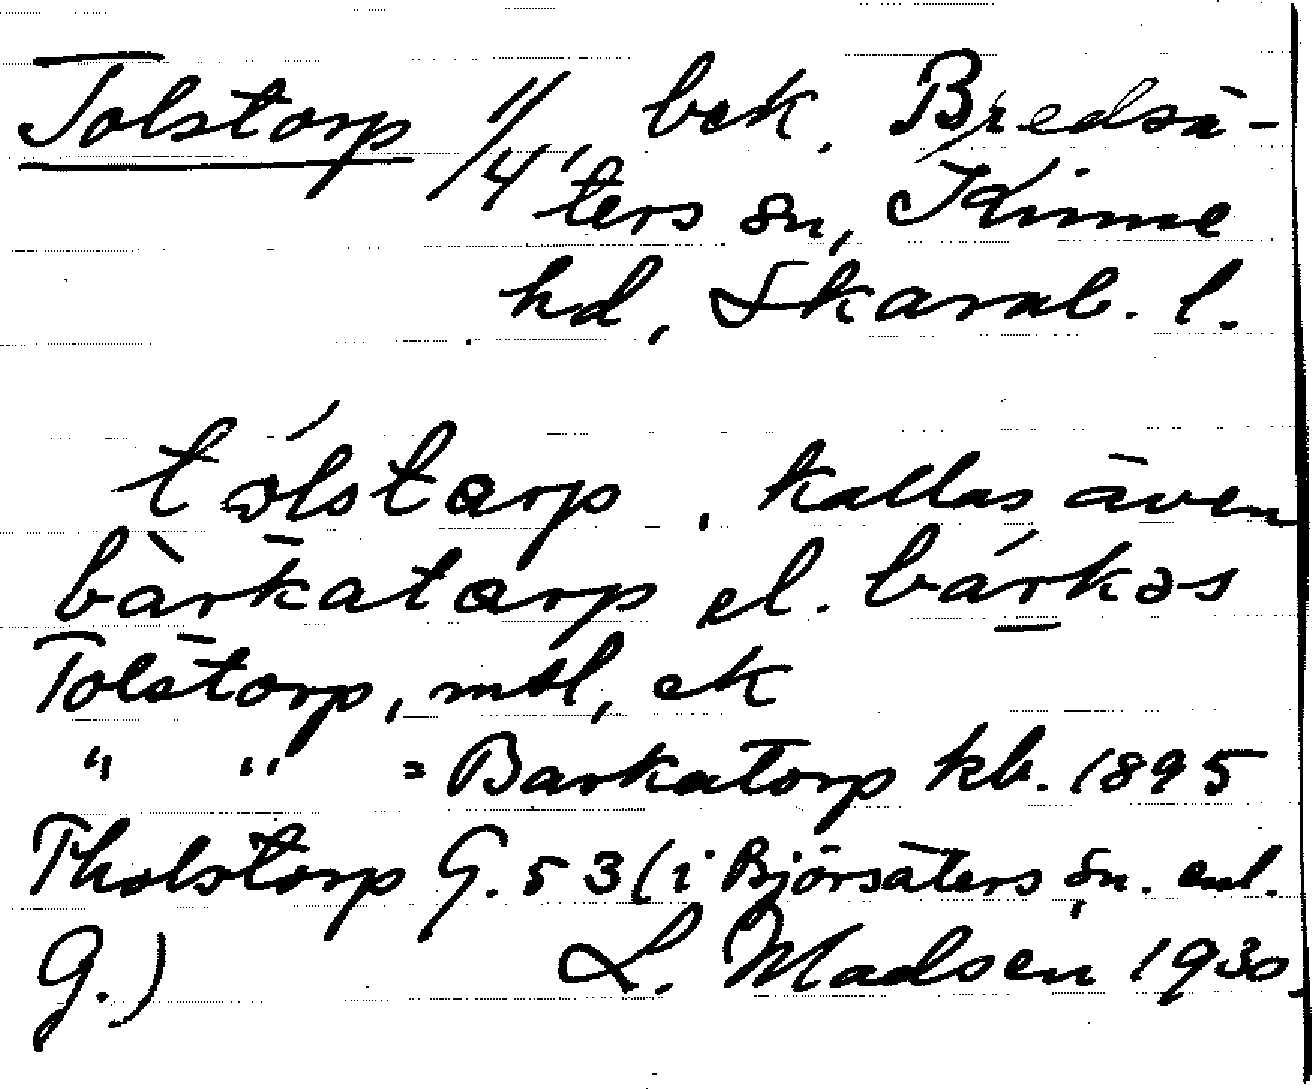 Tolstorp 1/4, bek. Bredsä-
ters sn, Kinne
hd, Skarab. l.
tólstorp, kallas även
bàrkatorp el. bárkəs
Tolstorp, mtl, ek
" " = Barkatorp kb. 1895
Tholstorp G. 53 (i Björsäters sn. enl.
G.) L. Madsen 1930.